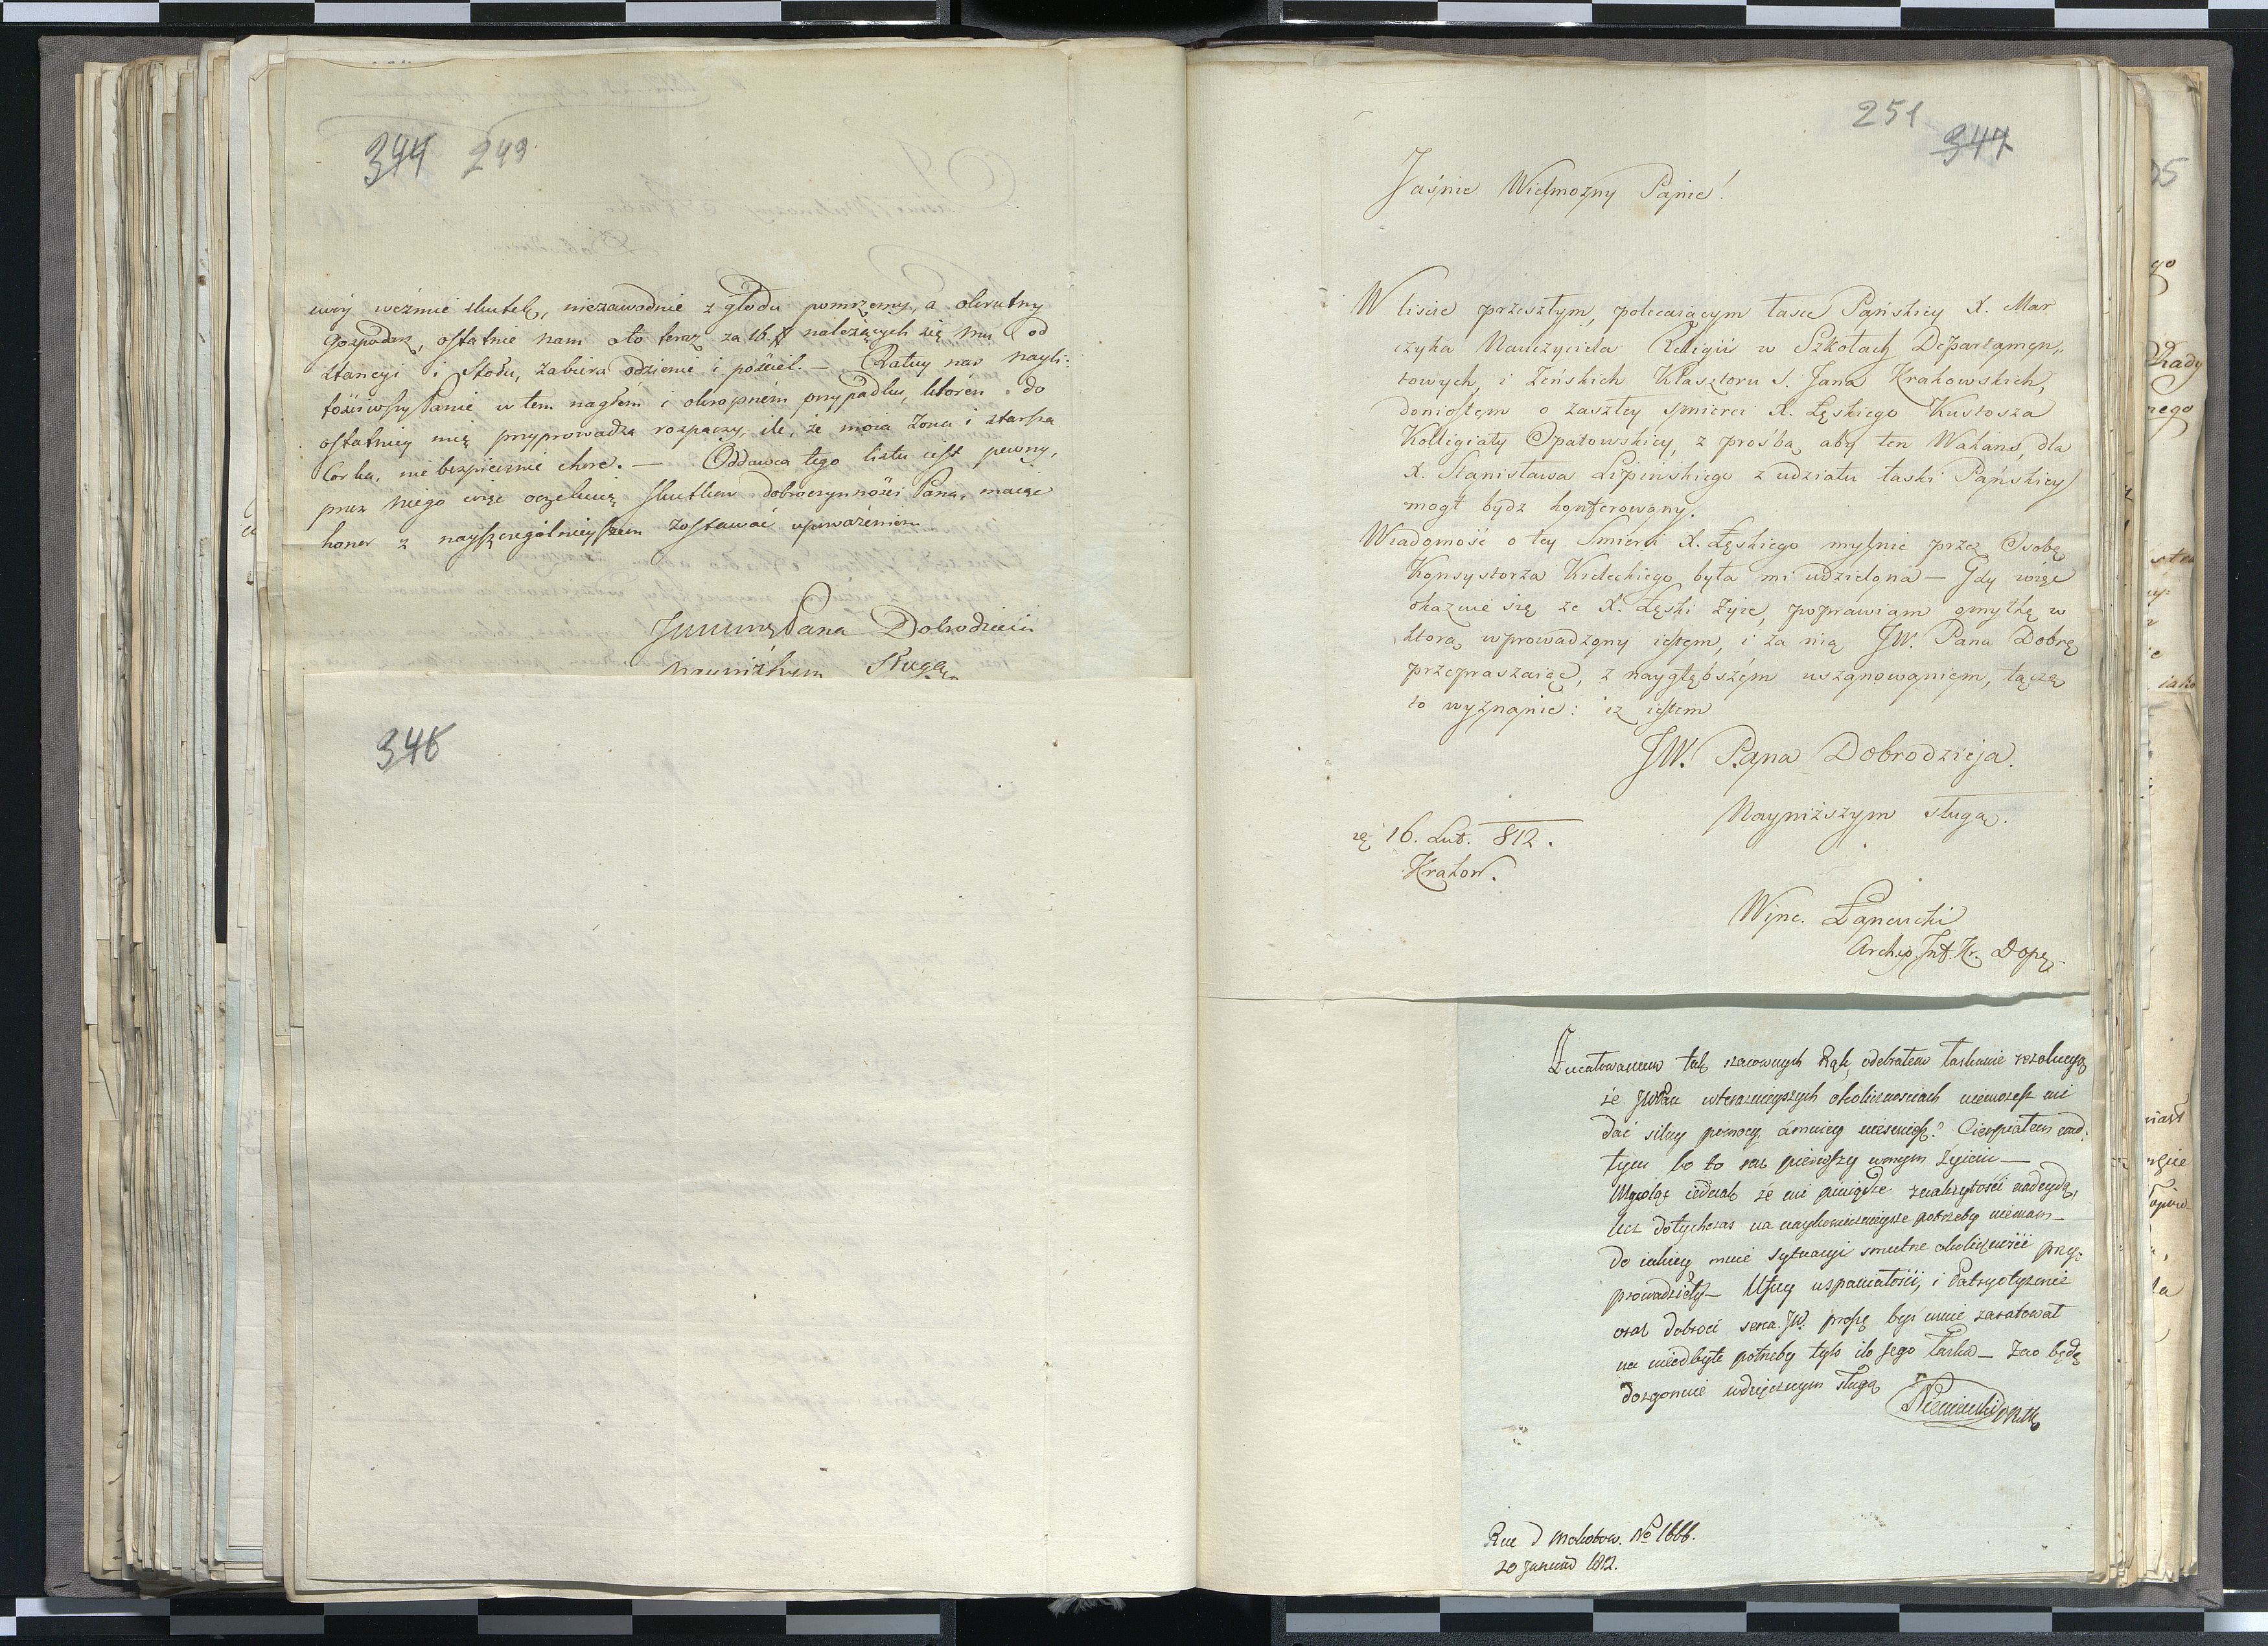 344 249
wéy weźmie skutek, niezawodnie z głodu pomrzemy, a okrutny
Gospodarz, ostatnie nam oto teraz za 16. # należących się mu od
stancyi i stołu, zabiera odzienie i pościel. — Ratuy nas nayli:
tościwszy Panie w tem nagłem i okropném przypadku, któren do
ostatniey mię przyprowadza rozpaczy, ile, że moia Zona i starsza
Corka, niebezpiecznie chore. — Oddawca tego listu iest pewny,
przez niego więc oczekuię skutków dobroczynności Pana, maiąc
honor z nayszczególnieyszem zostawać upoważeniem
Pana Dobrodzieia
nayniższym Sługą
346
251
347
Jaśnie Wielmozny Panie!
W liście przeszłym, polecaiącym łasce Pańskiey X. Mar
czyka Nauczyciela Religii w Szkołach Departamen„
towych, i Zeńskich Klasztoru S. Jana Krakowskich,
doniosłem o zaszłey śmierci X. Łęskiego Kustosza
Kollegiaty Opatowskiey, z prośbą aby ten Wakans, dla
X. Stanisława Lipińskiego z udziału łaski Pańskiey
mogł bydz konferowany.
Wiadomość o tey Smierci X. Łęskiego mylnie przez Osobę
Konsystorza Kieleckiego była mi udzielona — Gdy więc
okazuie się ze X. Łęski żyie, poprawiam omyłkę w
ktorą wprowadzony iestem, i za nią JW. Pana Dobrę
przepraszaiąc, z nayglębszém uszanowaniem, łączę
to wyznanie: iz iestem
JW. Pana Dobrodzieja.
Nayniższym sługą.
16. Lut. 812.
Krakow.
Winc. Łańcucki
Archip. Int. Kr. Dopę.
tak szanownych Rąk, odebrałem łaskawie rezolucyą
że JWPan wteraznieyszych okolicznościach niemożesz mi
dać silney pomocy, Cierpiałem nad
tym bo to raz pierwszy wmoym życiu —
Myślę iednak że mi pieniądze nadeydą,
lecz dotychczas na naykoniecznieysze potrzeby niemam —
do iakiey mnie sytuacyi smutne okoliczności przy:
prowadziły — Ufny wspaniałości, i Patryotyzmie
oraz dobroci serca JW. proszę byś mnie zaratował
na niezbyte potrzeby tylo ile Jego łaska — Zaco będę
dozgonnie wdzięcznym sługą
Rue d Mokotow. No 1666.
20 Januar 1812.